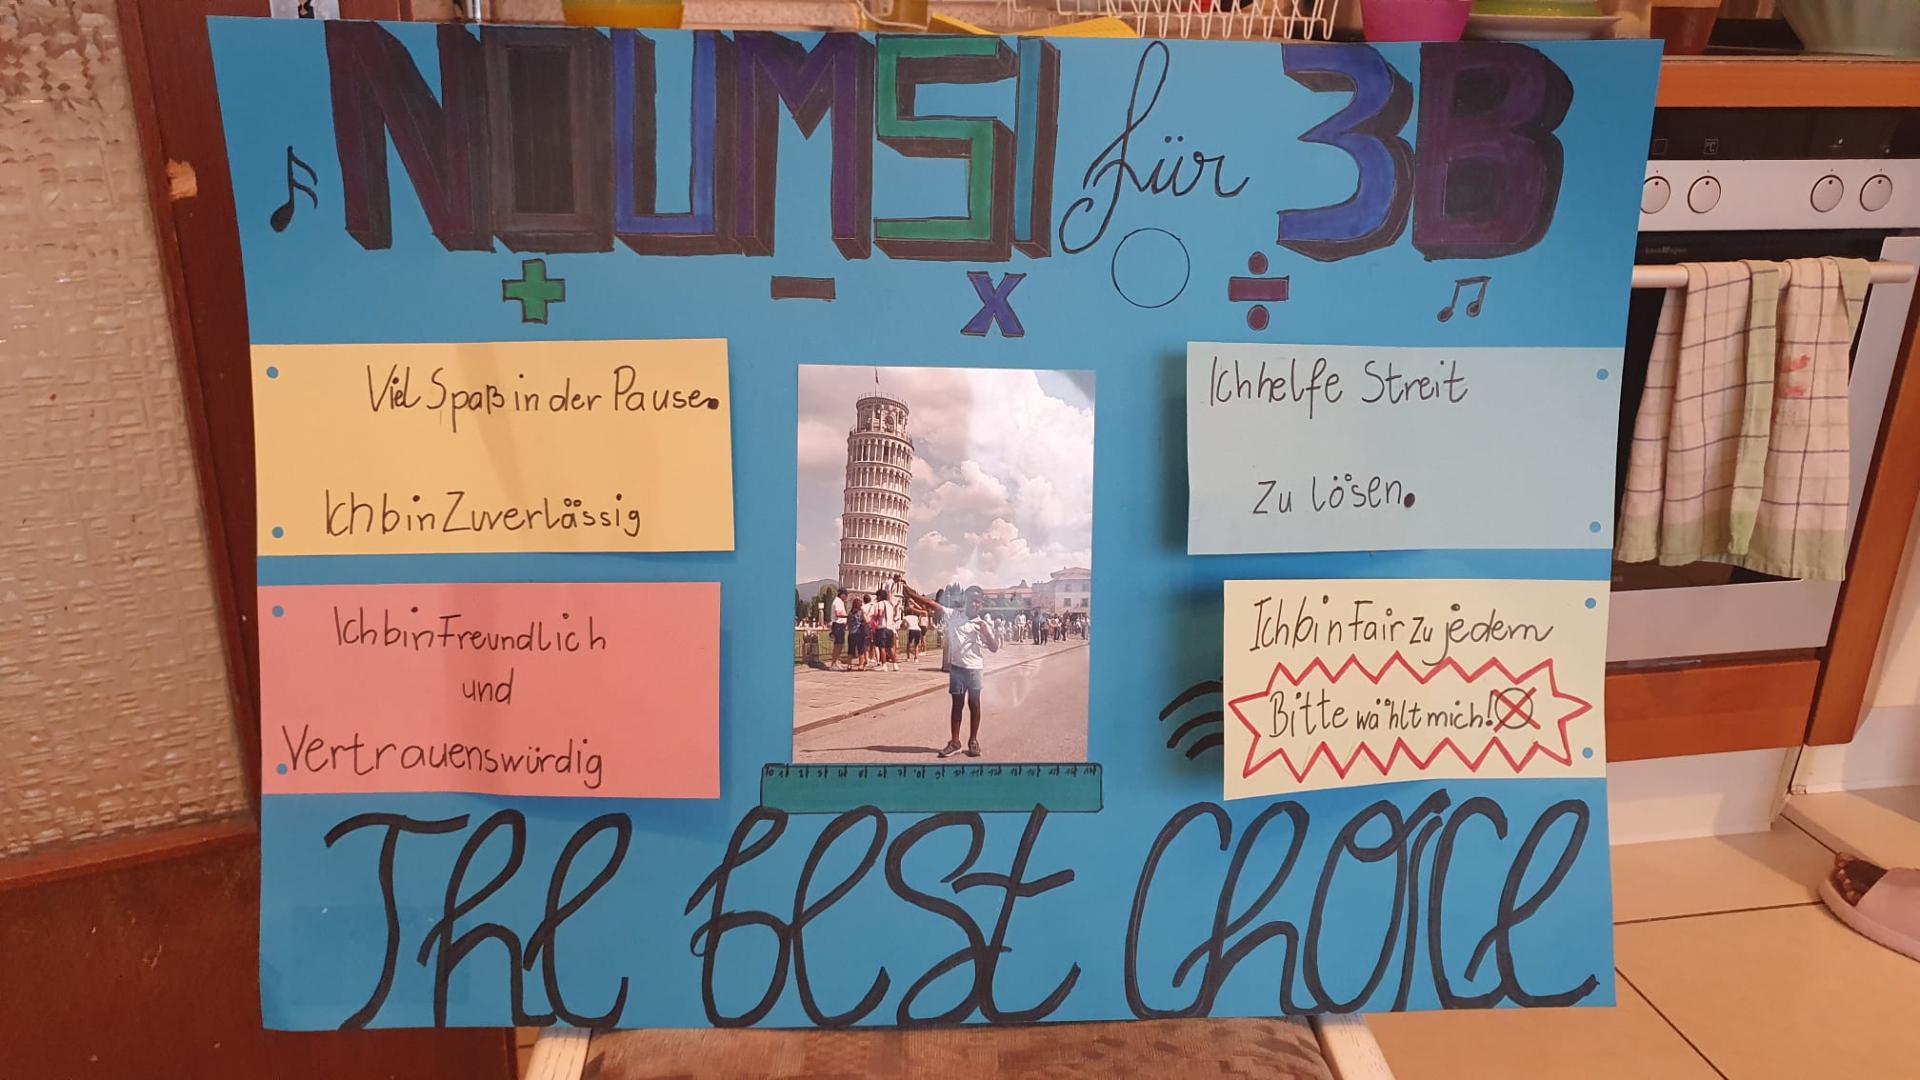 NOUMSI für 3B
+ - x ÷
Viel Spaß in der Pause.
Ich bin Zuverlässig
Ich helfe Streit
zu lösen.
Ich bin Freundlich
und
Vertrauenswürdig
Ich bin Fair zu jedem
Bitte wählt mich!
The best choice